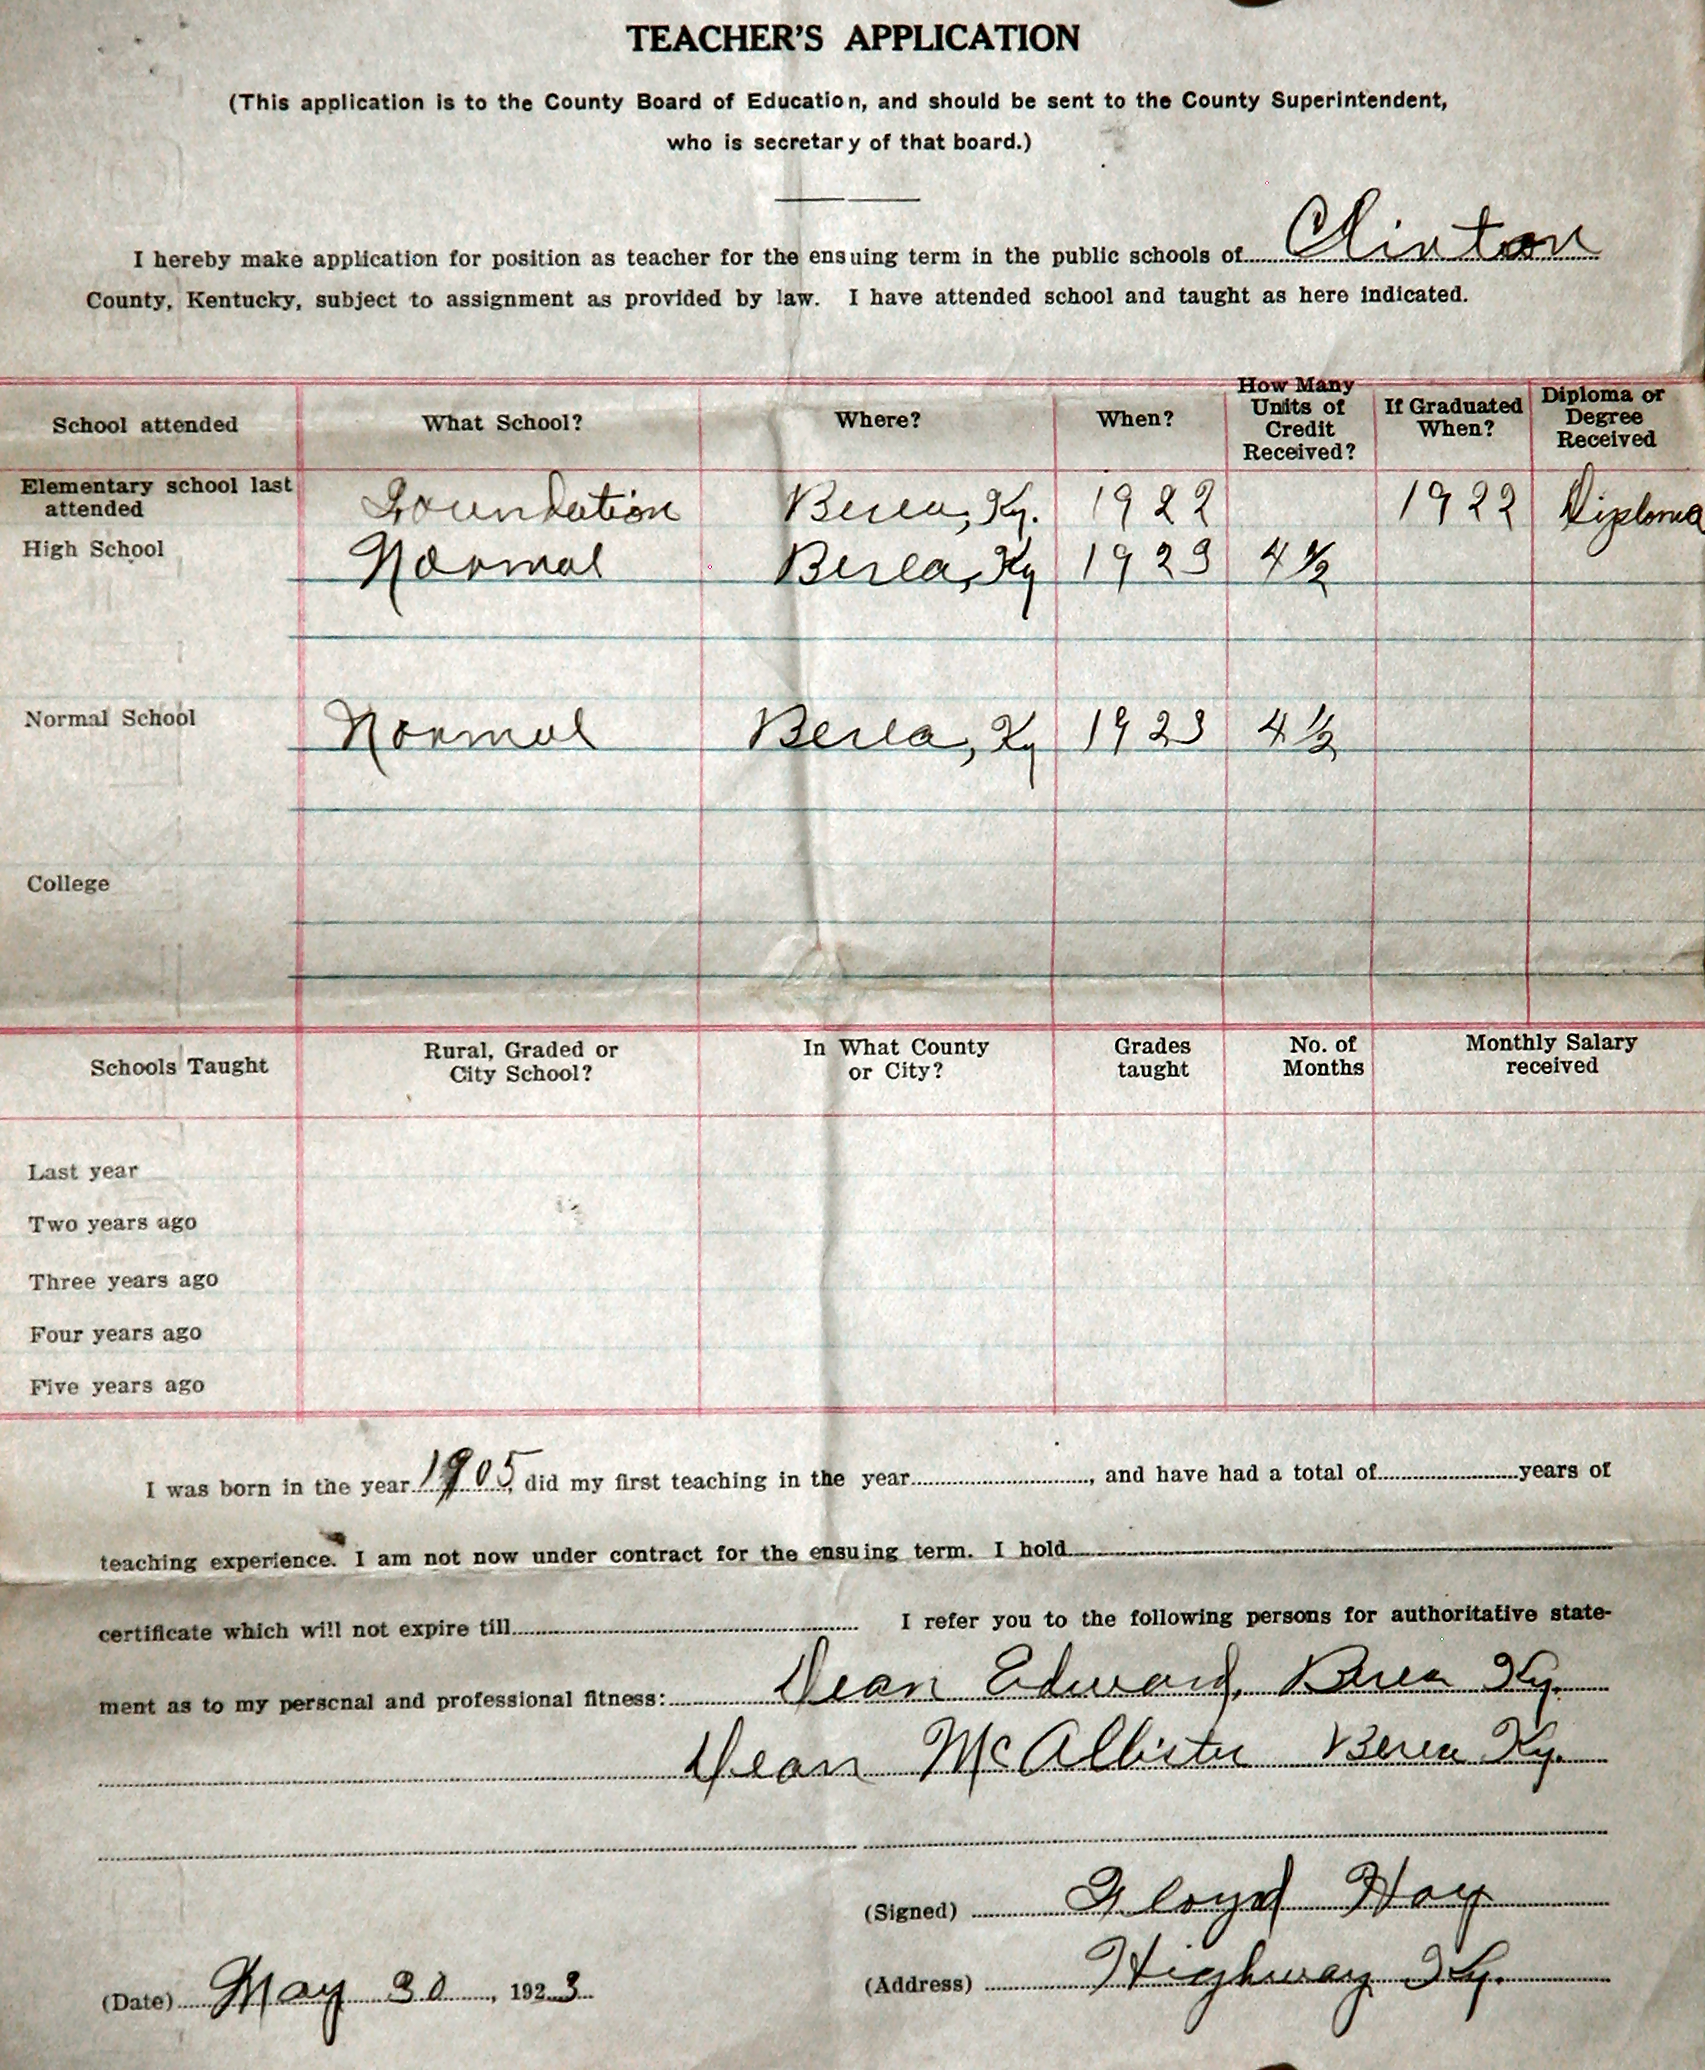 TEACHER'S APPLICATION
(This application is to the County Board of Education, and should be sent to the County Superintendent,
who is secretary of that board.)
I hereby make application for position as teacher for the ensuing term in the public schools of Clinton
County, Kentucky, subject to assignment as provided by law. I have attended school and taught as here indicated.
School attended What School? Where? When? How Many Units of Credit Received? If Graduated When? Diploma or Degree Received
Elementary school last attended Foundation Berea, Ky. 1922 1922 Diploma
High School Normal Berea, Ky 1923 4 ½
Normal School Normal Berea, Ky 1923 4 ½
College
Schools Taught Rural, Graded or City School? In What County or City? Grades taught No. of Months Monthly Salary received
Last year
Two years ago
Three years ago
Four years ago
Five years ago
I was born in the year 1905, did my first teaching in the year, and have had a total of years of
teaching experience. I am not now under contract for the ensuing term. I hold
certificate which will not expire till I refer you to the following persons for authoritative state-
ment as to my personal and professional fitness: Dean Edward, Berea Ky.
Dean McAllister Berea Ky.
(Signed) Floyd Hay
(Address) Highway Ky.
(Date) May 30, 1923